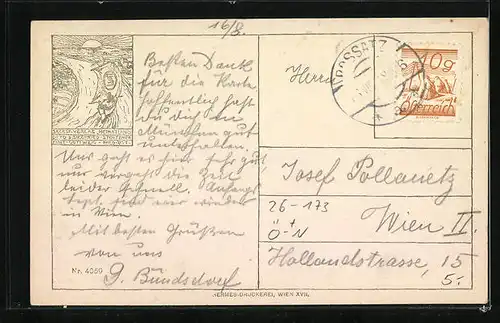 16/8.
Besten Dank
für die Karte,
hoffentlich hast
du dich in
München gut
unterhalten.
Uns geht es hier sehr gut
nur vergeht die Zeit
leider schnell. Anfangs
Sept. sind wir wieder
in Wien.
Mit besten Grüßen
von uns
G. Bündsdorf
Nr. 4059
ROSSATZ
10g
Österreich
Herrn
Josef Pollanetz
26-173
Ö-N
Wien II.
Hollandstrasse, 15
5.
HERMES-DRUCKEREI, WIEN XVII.